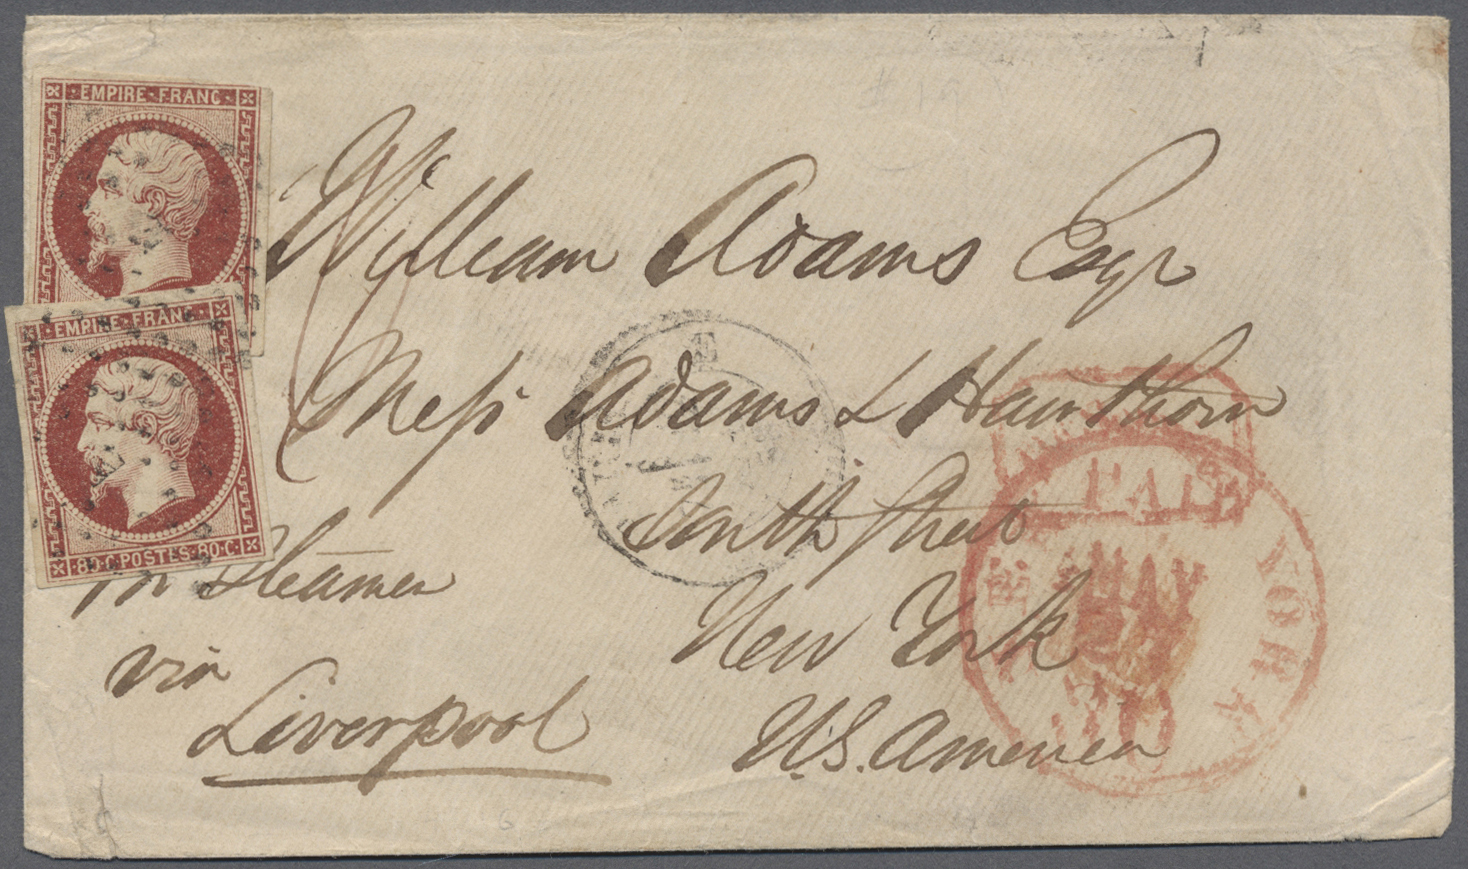 EMPIRE·FRANC·
EMPIRE·FRANC·
80·C·POSTES·80·C·
# 19
William Adams Esqr
Mess Adams & Hawthorn
South Street
New York
U.S. America
pr Steamer
via
Liverpool
PAID
NEW YORK
MAY